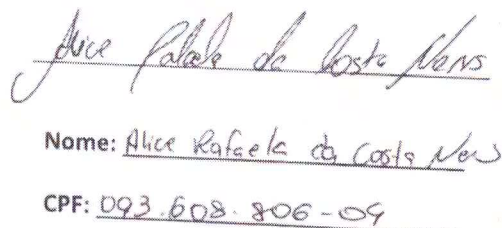 Alice Rafaela da Costa Neves
Nome: Alice Rafaela da Costa Neves
CPF: 093.608.806-09